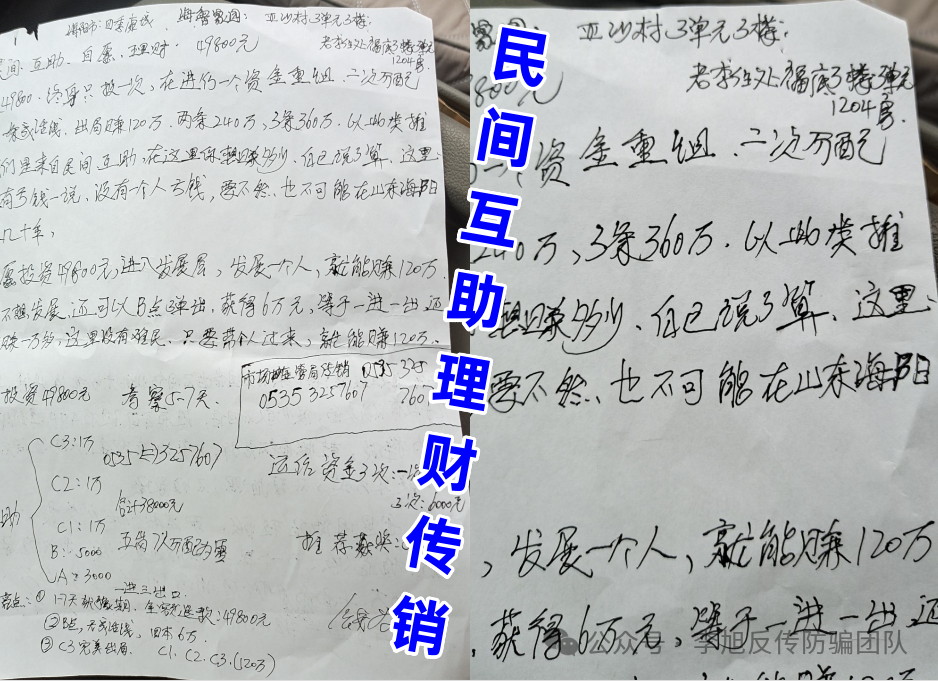 海阳市:
亚沙村3单元3楼:
49800元
1204房.
间互助、自愿、理财·
49800·终身只投一次,在进行一个资金重组.二次分配
出局赚120万.两条240万,3条360万.以此类推
们是来自民间互助,在这里你想赚多少,自己说了算.这里:
有亏钱一说、没有一个人亏钱,要不然、也不可能在山东海阳
几十年,
愿投资49800元,进入发展层,发展一个人,就能赚120万.
不想发展,还可以B点弹出,获得6万元,等于一进一出还
赚一万多,这里没有难民、只要带个人过来,就能赚120万.
投资49800元 考察5-7天
0535 3257607
C3:1万
0535-3257607
C2:1万
合计38000元
C1:1万
助
B:5000
A:3000
运作资金3次:一次
3次:6000元
推荐奖:
一进三出口
亮点:① 1-7天 全额退款:49800元
②B点, 回本6万
③C3完美出局. C1.C2.C3.(120万)
亚沙村3单元3楼:
1204房.
资金重组.二次分配
240万,3条360万.以此类推
想赚多少、自己说了算、这里:
要不然、也不可能在山东海阳
,发展一个人,就能赚120万
,获得6万元,等于一进一出还
民间互助理财传销
公众号·李旭反传防骗团队